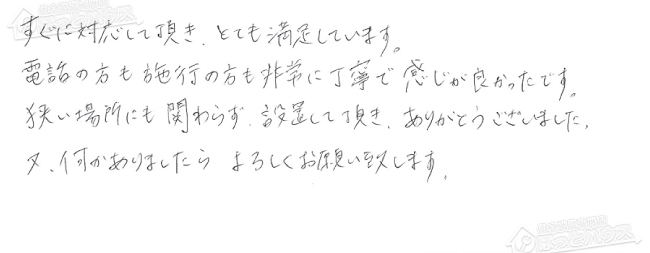 すぐに対応して頂き、とても満足しています。
電話の方も施行の方も非常に丁寧で感じが良かったです。
狭い場所にも関わらず、設置して頂き、ありがとうございました。
又、何かありましたら よろしくお願い致します。